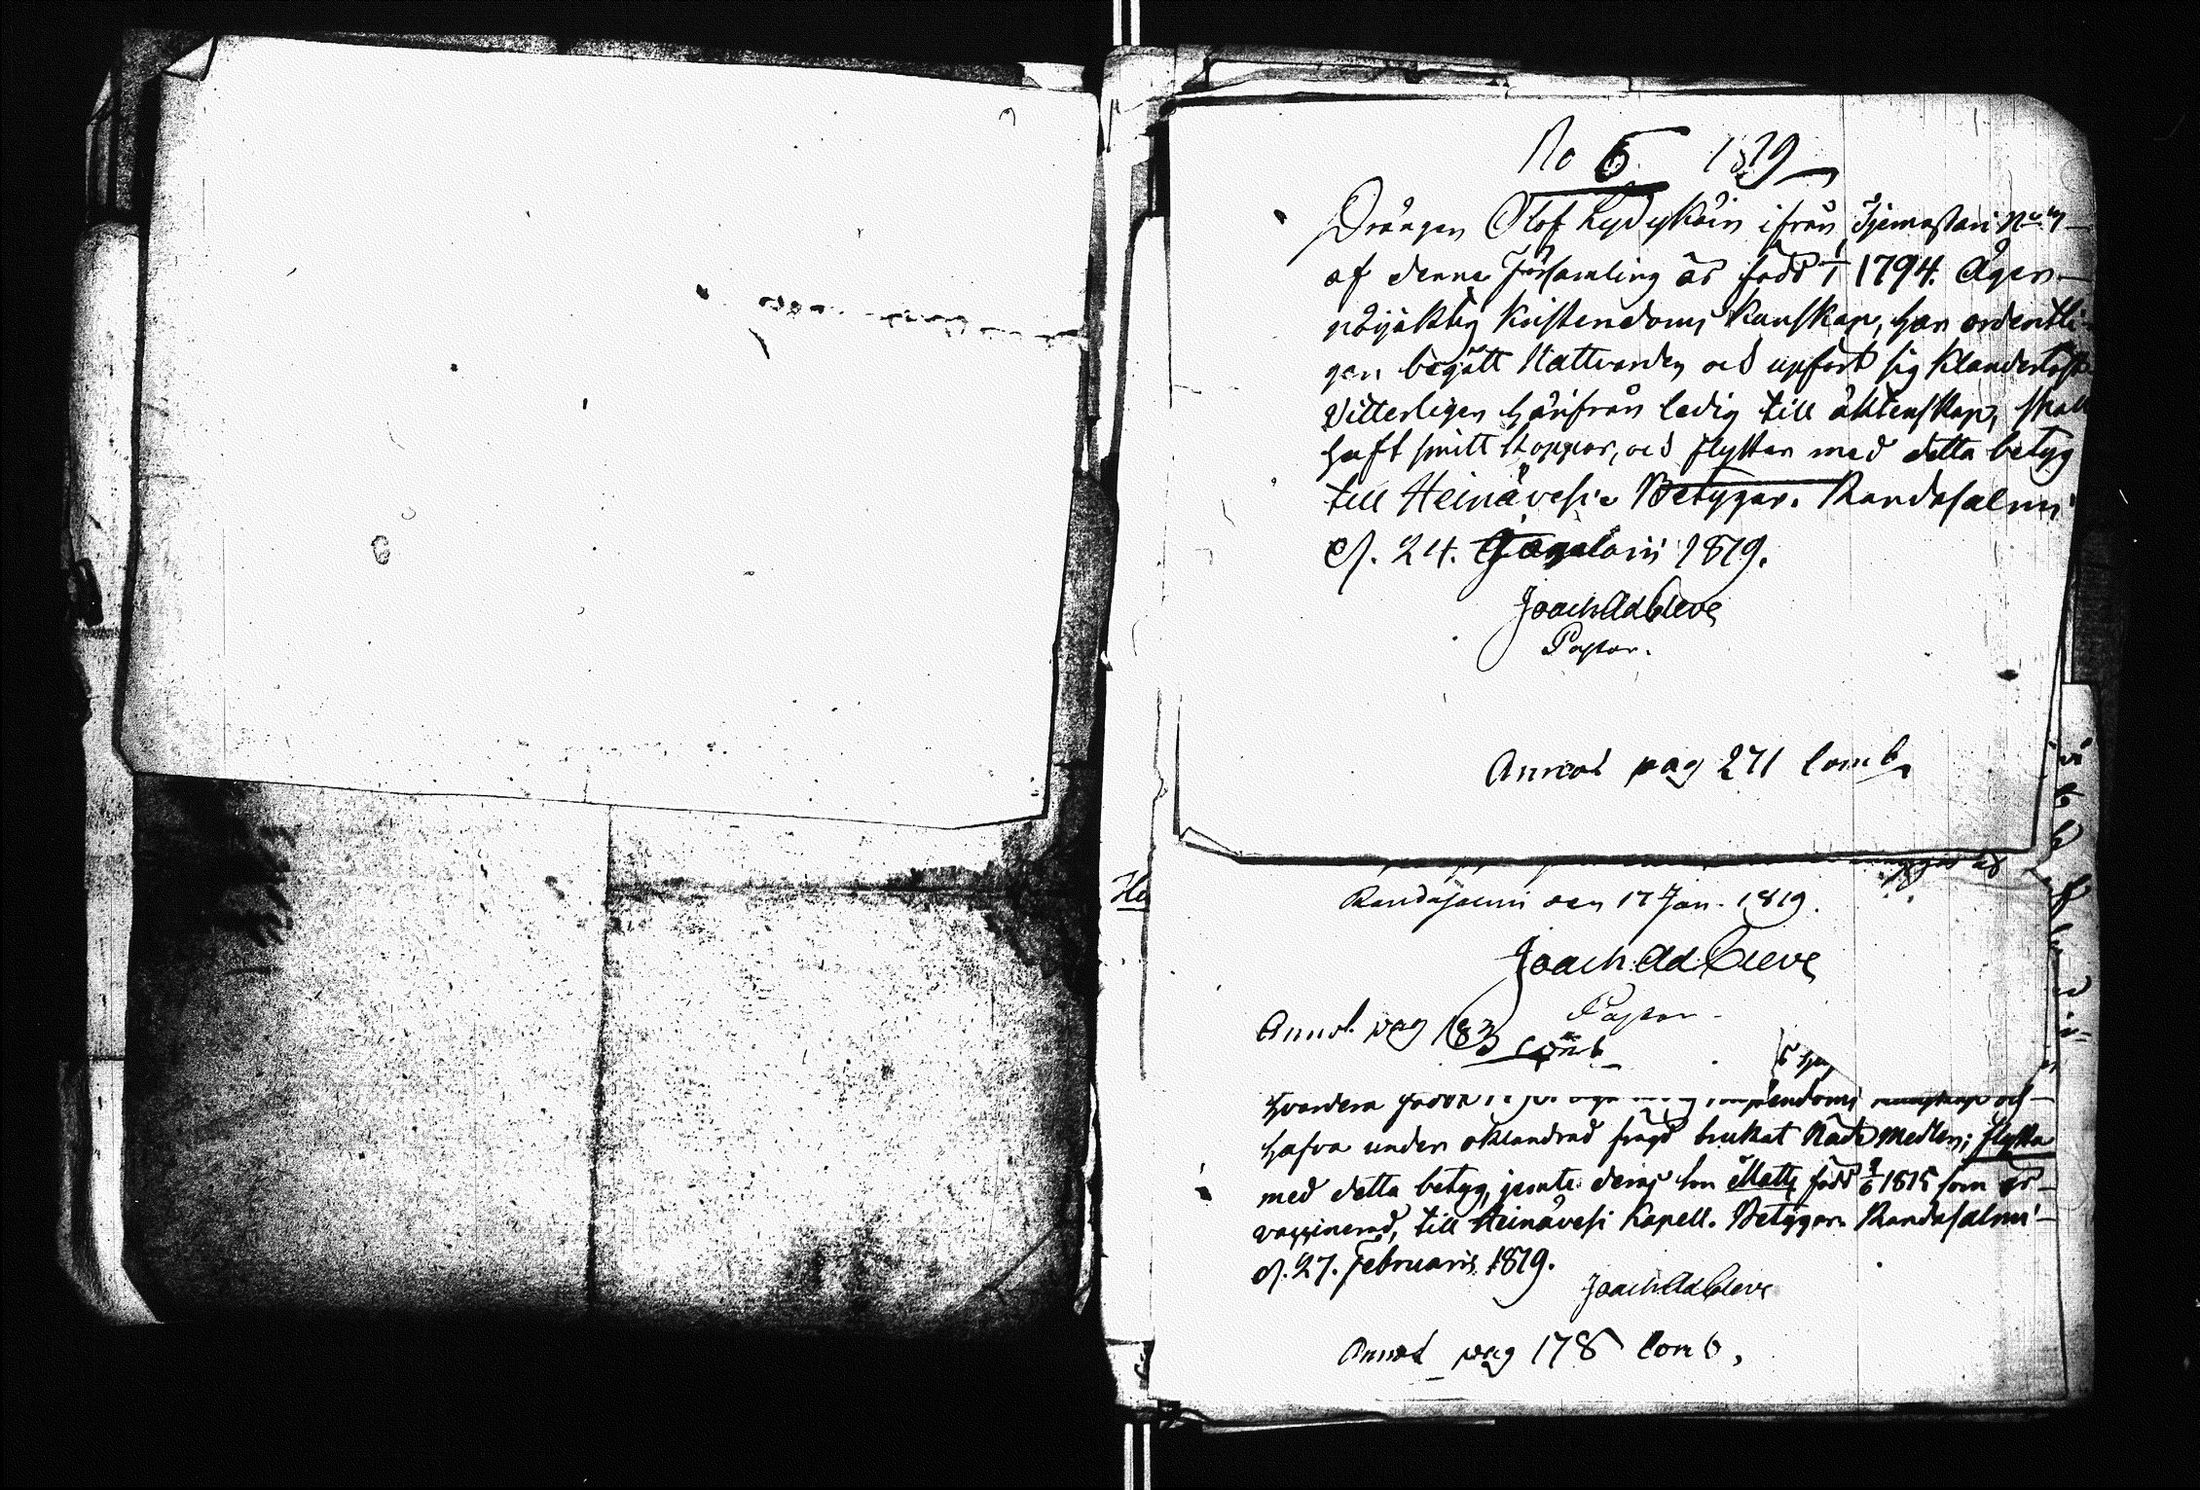 No 6 1819
Drängen Olof LyDykäin ifrån Hjemastari No
af denna Församling är född 1/1 1794. Äger
nöjaktig Kristendoms Kunskap, har ordentli-
gen begått Nattvarden och upfört sig Klanderlöst
Vitterligen härifrån ledig till äktenskap,
haft smitt Koppor, och flyttar med detta betyg
till Heinävesi. Betygar. Randasalmi
d. 24. 1819.
Joach Ad Cleve
Pastor.
Annot pag 271 Comb
Randasalmi den 17 Jan. 1819.
Joach. Ad Cleve
Pastor
Annot. pag 183
Comb
och
hafva under oklandrad frägd brukat Nåde Medlen; flytta
med detta betyg, jemte deras son Matts född 1815 som är
vaccinerad, till Heinävesi Kapell. Betygar. Randasalmi
d. 27. Februarii 1819.
Joach Ad Cleve
Annot pag 178 Comb,